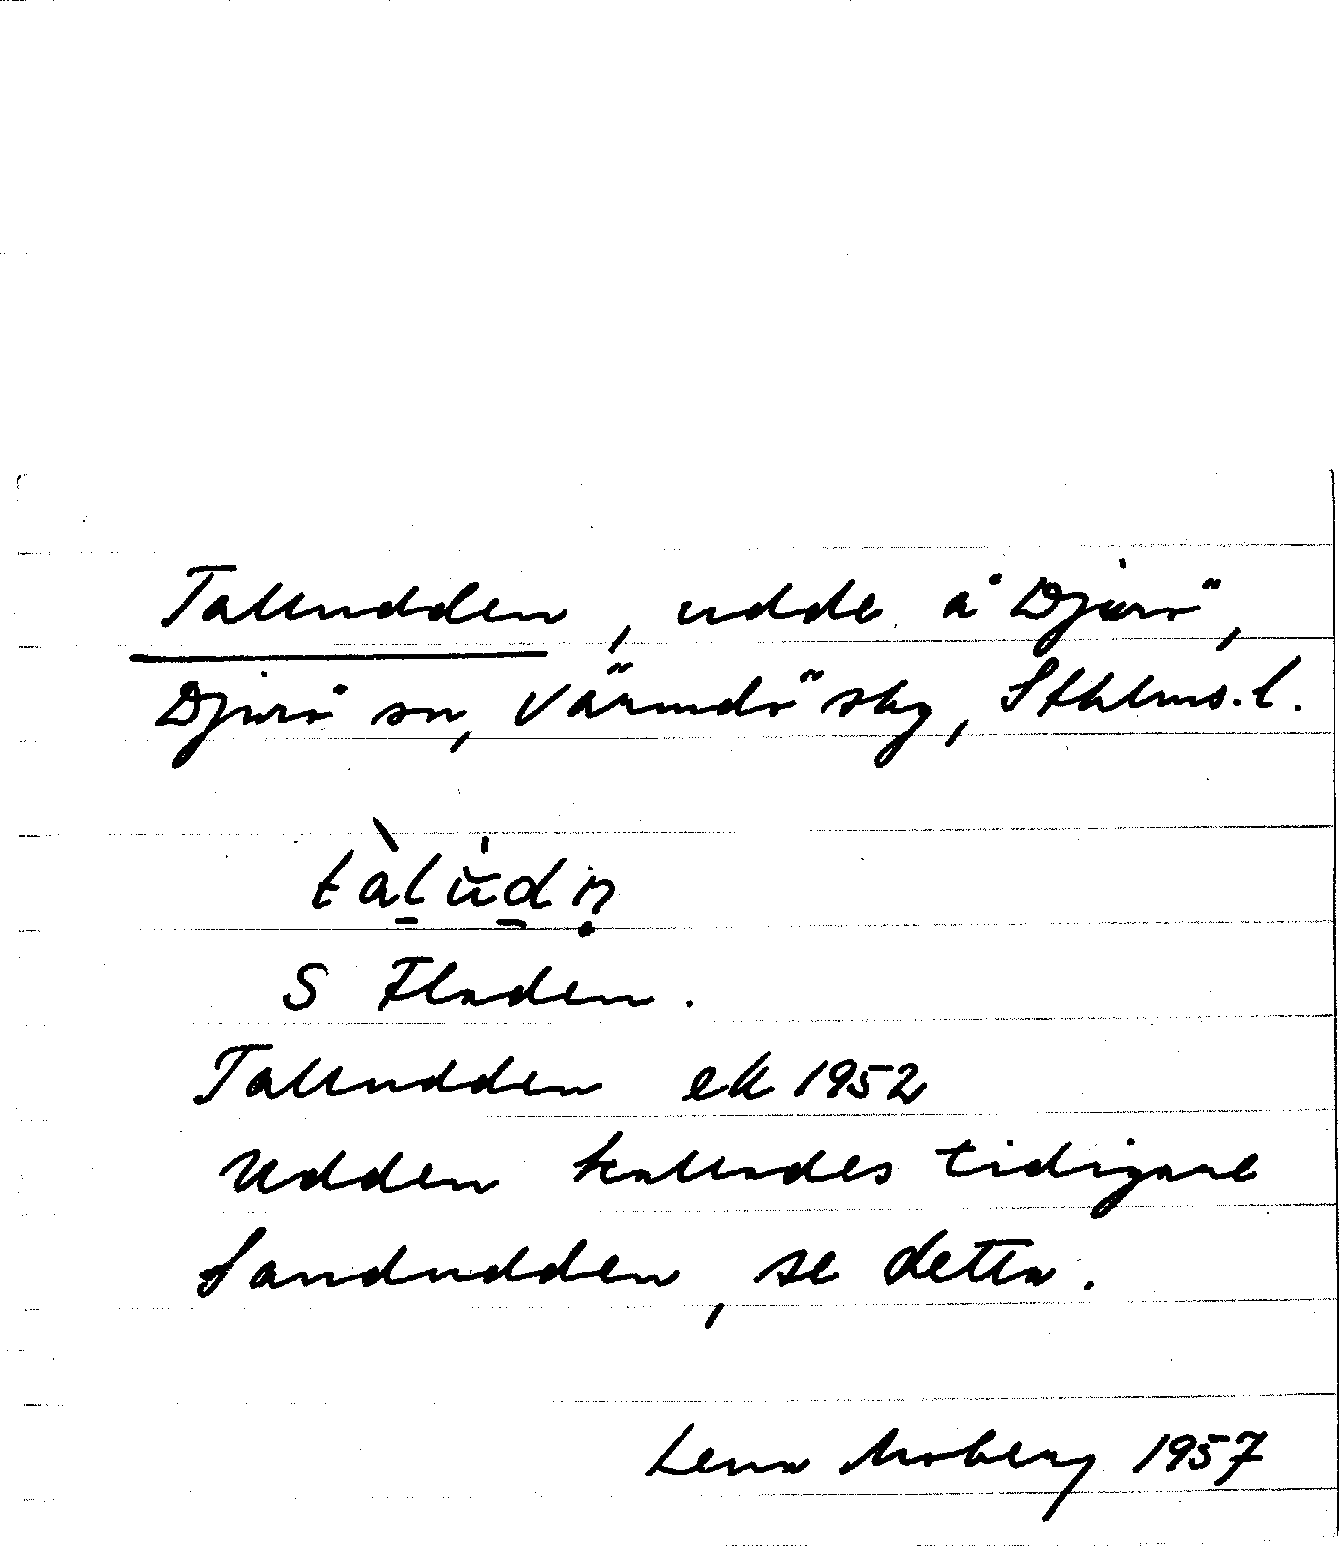 Talludden, udde å Djurö,
Djurö sn, Värmdö skg, Sthlms. l.
tàl̠ŭ̀d̠ṇ
S Fladen.
Talludden ek 1952
Udden kallades tidigare
Sandudden, se detta.
Lena Moberg 1957